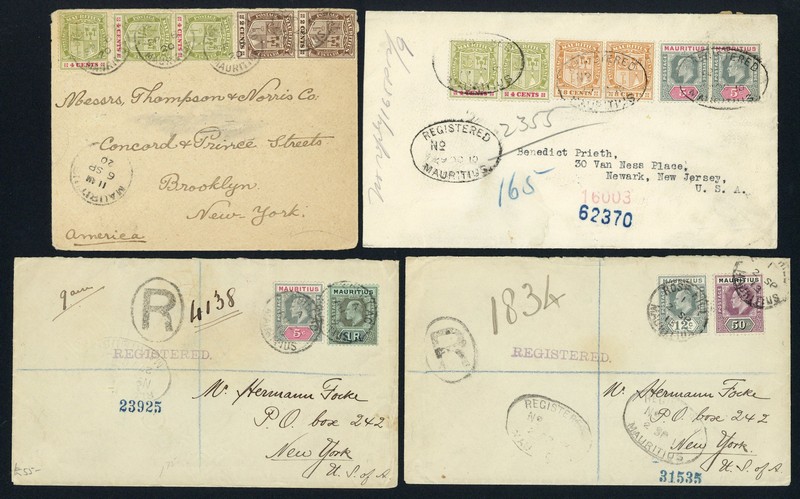 4 CENTS 4 CENTS 4 CENTS
MAURITIUS
Messrs, Thompson & Norris Co.
Concord & Prince Streets
Brooklyn.
New-York.
America
11 AM
6 SP
20
MAURITIUS
4 CENTS 4 CENTS
MAURITIUS MAURITIUS
5c
REGISTERED
MAURITIUS
2355
REGISTERED
No
MAURITIUS
165
Benedict Prieth,
30 Van Ness Place,
Newark, New Jersey,
U. S. A.
16003
62370
R
4138
MAURITIUS MAURITIUS
5c 1R
REGISTERED.
23925
Mr. Hermann Focke
P.O. box 242
New York
U. S. of A
1834
MAURITIUS MAURITIUS
12c 50
REGISTERED.
REGISTERED
No
Mr. Hermann Focke
P.O. box 242
New York.
U. S. of A
MAURITIUS
31535